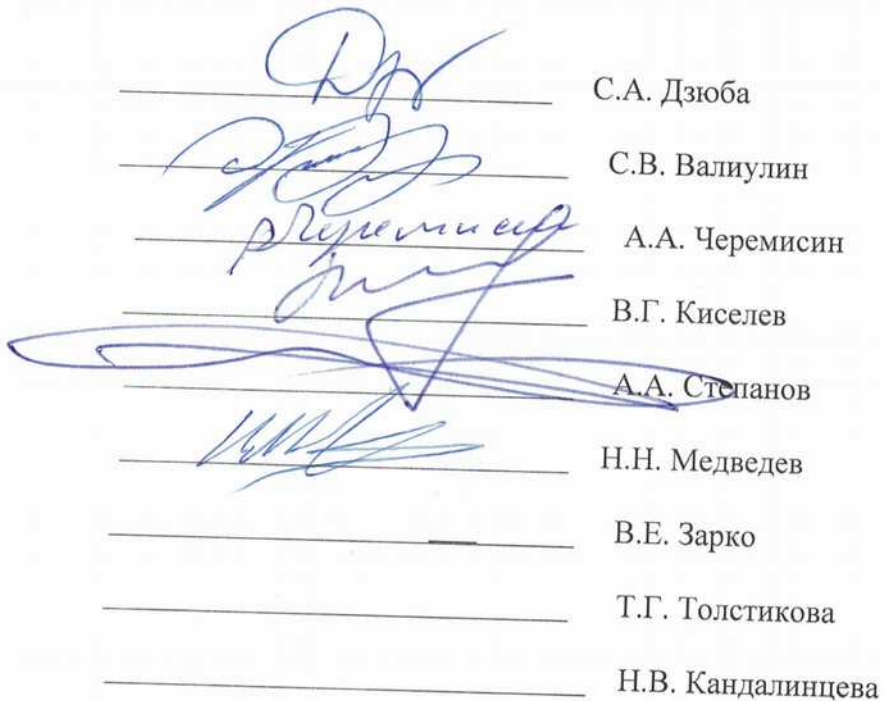 С.А. Дзюба
С.В. Валиулин
А.А. Черемисин
В.Г. Киселев
А.А. Степанов
Н.Н. Медведев
В.Е. Зарко
Т.Г. Толстикова
Н.В. Кандалинцева